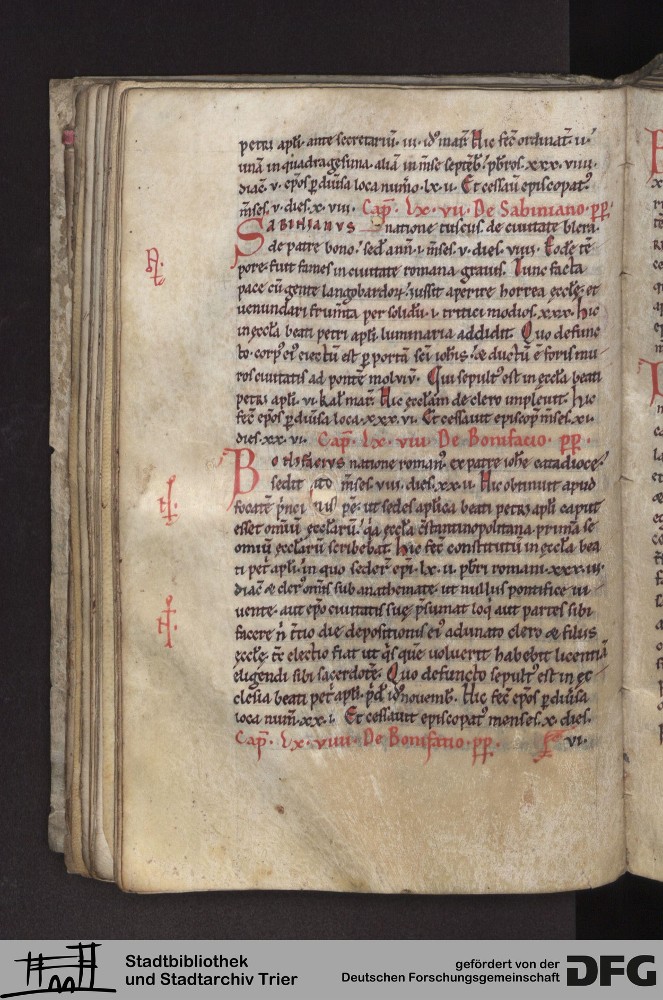 petri apłi. ante secretariũ. iii. id᷒ mar̃. Hic fec̃ ordinat̃. ii᷒
unã in quadragesima. aliã in m̃se septẽb᷒. p̃bros. xxx. viiii.
diac̃. v. ep̃os p diũsa loca num̃o. lx. ii. Et cessaũ episcopat᷒
m̃ses. v. dies. x. viii. Cap̃. Lx. vii. De Sabiniano. pp.
SABINIANVS natione tuscus de ciuitate blera.
de patre bono. sed̃ ann̄. i. m̃ses. v. dies. viiii. Eodẽ tẽ
pore fuit fames in ciuitate romana grauis. Tunc facta
pace cũ gente langobardoꝝ. iussit aperire horrea eccłe. et
uenundari frum̃ta per solidũ. i. tritici modios. xxx. hic
in eccła beati petri apłi luminaria addidit. Quo defunc
to. corp᷒ ei᷒ eiectũ est p portã sc̃i ioh̃is. & ductũ ẽ foris mu
ros ciuitatis ad pontẽ molviũ. Qui sepult᷒ est in eccła beati
petri apłi. vi. kał mar̃. Hic eccłam de clero impleuit. hic
fec̃ ep̃os p diũsa loca. xxx. vi. Et cessauit episcop᷒ m̃ses. xi.
dies. xx. vi. Cap̃. Lx. viii. De Bonifacio. pp.
BONIFACIVS natione roman᷒. ex patre ioh̃e catadioce᷒
sedit m̃ses. viii. dies. xx. ii. Hic obtinuit apud
focatẽ p̃nci pẽ. ut sedes apłica beati petri apłi caput
esset omniũ eccłarũ. q̃a eccła c̃stantinopolitana. primã se
omniũ eccłarũ scribebat. hic fec̃ constitutũ in eccła bea
ti pet̃ apłi. in quo seder̃ ep̃i. lx. ii. p̃bri romani. xxx. iii.
diac̃ & cler᷒ om̃is sub anathemate. ut nullus pontifice ui
uente. aut ep̃o ciuitatis suę p̃sumat loq̃ aut partes sibi
facere ñ t̃tio die depositionis ei᷒ adunato clero & filiis
eccłe. tc̃ electio fiat ut q̃s quẽ voluerit habebit licentiã
eligendi sibi sacerdotẽ. Quo defuncto sepult᷒ est in ec
clesia beati pet̃ apłi. p̃d id᷒ nouemb̃. Hic fec̃ ep̃os p diũsa
loca num̃. xx. i. Et cessauit episcopat᷒ menses. x. dies.
Cap̃. Lx. viiii. De Bonifatio. pp. vi.
Stadtbibliothek
und Stadtarchiv Trier
gefördert von der
Deutschen Forschungsgemeinschaft
DFG